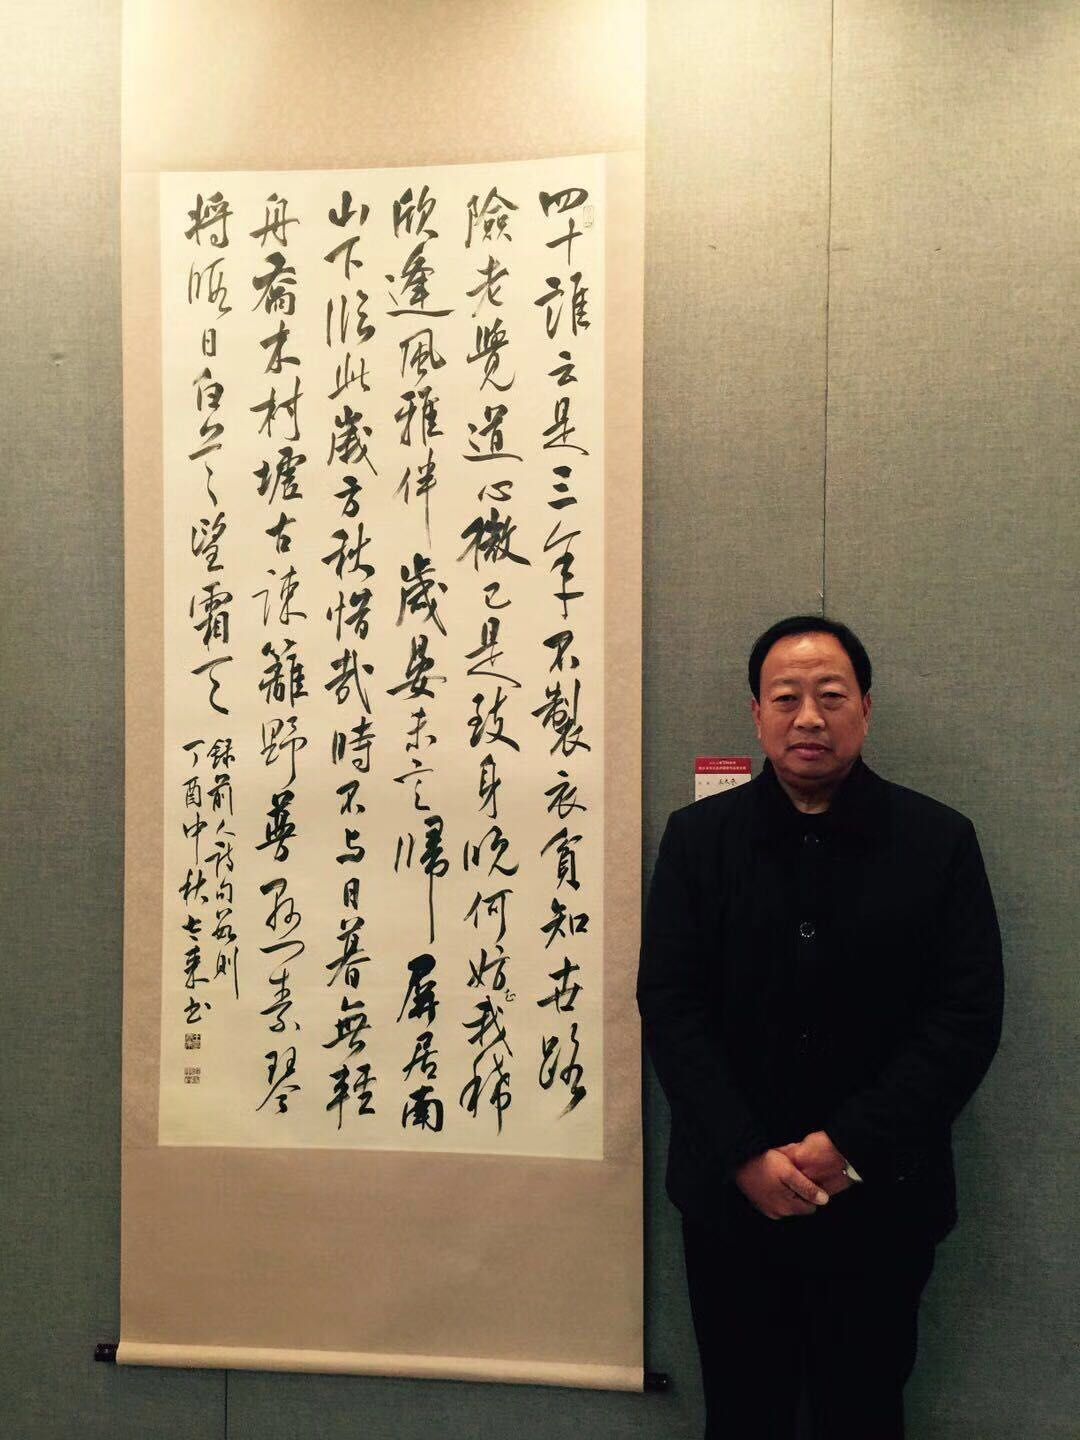 四十誰云是三年不製衣貧知世路
險老覺道心微已是致身晚何妨我稀
欣逢風雅伴歲晏未言歸屏居南
山下臨此歲方秋惜哉時不与日暮無輕
舟喬木村墟古疎籬野蔓懸素琴
將暇日白首望霜天
錄前人詩句數則
丁酉中秋 書